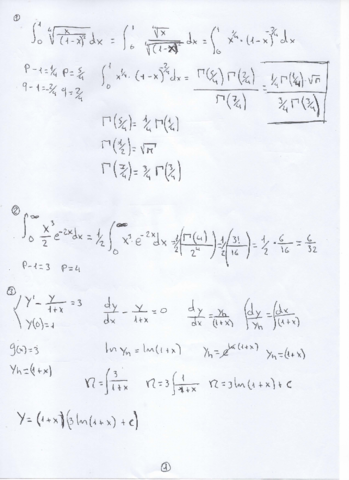 ①
∫₀¹ ⁴√(x/(1-x)²) dx = ∫₀¹ ⁴√x / ⁴√(1-x)² dx = ∫₀¹ x^(1/4) · (1-x)^(-2/4) dx
p-1=1/4 p=5/4 ∫₀¹ x^(1/4) · (1-x)^(-2/4) dx = Γ(5/4) Γ(2/4) / Γ(7/4) = 1/4 Γ(1/4) · √π / 3/4 Γ(3/4)
q-1=-2/4 q=2/4
Γ(5/4) = 1/4 Γ(1/4)
Γ(1/2) = √π
Γ(7/4) = 3/4 Γ(3/4)
②
∫₀^∞ x³/2 e^(-2x) dx = 1/2 ∫₀^∞ x³ e^(-2x) dx = 1/2 (Γ(4)/2⁴) = 1/2 (3!/16) = 1/2 · 6/16 = 6/32
p-1=3 p=4
{ y' - y/(1+x) = 3 dy/dx - y/(1+x) = 0 dy/dx = yh/(1+x) ∫ dy/yh = ∫ dx/(1+x)
y(0)=1
g(x)=3 ln yh = ln(1+x) yh = e^(ln(1+x)) yh = (1+x)
yh = (1+x)
n = ∫ 3/(1+x) n = 3∫ 1/(1+x) n = 3 ln(1+x) + c
y = (1+x)(3 ln(1+x) + c)
①